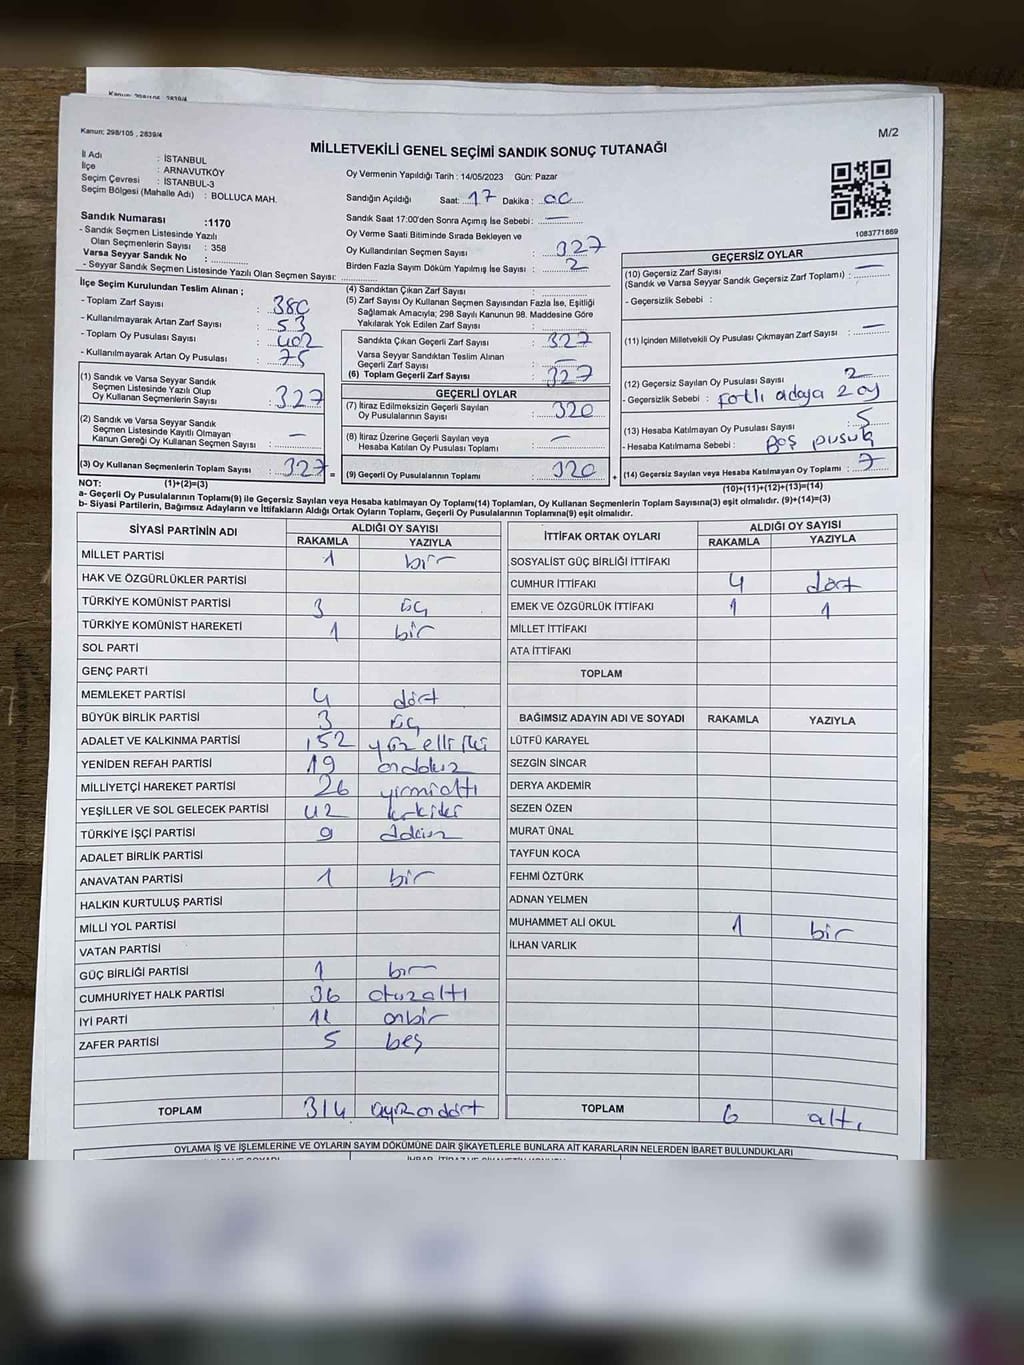 Kanun; 298/105 , 2839/4
Kanun; 298/105 , 2839/4
M/2
MİLLETVEKİLİ GENEL SEÇİMİ SANDIK SONUÇ TUTANAĞI
İl Adı : İSTANBUL
İlçe : ARNAVUTKÖY
Seçim Çevresi : İSTANBUL-3
Seçim Bölgesi (Mahalle Adı) : BOLLUCA MAH.
Sandık Numarası :1170
- Sandık Seçmen Listesinde Yazılı
Olan Seçmenlerin Sayısı : 358
Varsa Seyyar Sandık No :
- Seyyar Sandık Seçmen Listesinde Yazılı Olan Seçmen Sayısı:
Oy Vermenin Yapıldığı Tarih : 14/05/2023 Gün: Pazar
Sandığın Açıldığı Saat: 17 Dakika : 00
Sandık Saat 17:00'den Sonra Açımış İse Sebebi: —
Oy Verme Saati Bitiminde Sırada Bekleyen ve
Oy Kullandırılan Seçmen Sayısı : 327
Birden Fazla Sayım Döküm Yapılmış İse Sayısı : 2
1083771869
İlçe Seçim Kurulundan Teslim Alınan ;
- Toplam Zarf Sayısı : 380
- Kullanılmayarak Artan Zarf Sayısı : 53
- Toplam Oy Pusulası Sayısı : 402
- Kullanılmayarak Artan Oy Pusulası : 75
(1) Sandık ve Varsa Seyyar Sandık
Seçmen Listesinde Yazılı Olup
Oy Kullanan Seçmenlerin Sayısı : 327
(2) Sandık ve Varsa Seyyar Sandık
Seçmen Listesinde Kayıtlı Olmayan
Kanun Gereği Oy Kullanan Seçmen Sayısı : —
(3) Oy Kullanan Seçmenlerin Toplam Sayısı : 327 =
(4) Sandıktan Çıkan Zarf Sayısı :
(5) Zarf Sayısı Oy Kullanan Seçmen Sayısından Fazla İse, Eşitliği
Sağlamak Amacıyla; 298 Sayılı Kanunun 98. Maddesine Göre
Yakılarak Yok Edilen Zarf Sayısı :
Sandıkta Çıkan Geçerli Zarf Sayısı : 327
Varsa Seyyar Sandıktan Teslim Alınan
Geçerli Zarf Sayısı : —
(6) Toplam Geçerli Zarf Sayısı : 327
GEÇERLİ OYLAR
(7) İtiraz Edilmeksizin Geçerli Sayılan
Oy Pusulalarının Sayısı : 320
(8) İtiraz Üzerine Geçerli Sayılan veya
Hesaba Katılan Oy Pusulası Toplamı : —
(9) Geçerli Oy Pusulalarının Toplamı : 320 +
GEÇERSİZ OYLAR
(10) Geçersiz Zarf Sayısı
(Sandık ve Varsa Seyyar Sandık Geçersiz Zarf Toplamı) : —
- Geçersizlik Sebebi :
(11) İçinden Milletvekili Oy Pusulası Çıkmayan Zarf Sayısı : —
(12) Geçersiz Sayılan Oy Pusulası Sayısı : 2
- Geçersizlik Sebebi : Fotlı adaya 2 oy
(13) Hesaba Katılmayan Oy Pusulası Sayısı : 5
- Hesaba Katılmama Sebebi : Boş pusula
(14) Geçersiz Sayılan veya Hesaba Katılmayan Oy Toplamı : 7
NOT: (1)+(2)=(3) (10)+(11)+(12)+(13)=(14)
a- Geçerli Oy Pusulalarının Toplamı(9) ile Geçersiz Sayılan veya Hesaba katılmayan Oy Toplamı(14) Toplamları, Oy Kullanan Seçmenlerin Toplam Sayısına(3) eşit olmalıdır. (9)+(14)=(3)
b- Siyasi Partilerin, Bağımsız Adayların ve İttifakların Aldığı Ortak Oyların Toplamı, Geçerli Oy Pusulalarının Toplamına(9) eşit olmalıdır.
SİYASİ PARTİNİN ADI ALDIĞI OY SAYISI
RAKAMLA YAZIYLA
MİLLET PARTİSİ 1 bir
HAK VE ÖZGÜRLÜKLER PARTİSİ
TÜRKİYE KOMÜNİST PARTİSİ 3 üç
TÜRKİYE KOMÜNİST HAREKETİ 1 bir
SOL PARTİ
GENÇ PARTİ
MEMLEKET PARTİSİ 4 dört
BÜYÜK BİRLİK PARTİSİ 3 üç
ADALET VE KALKINMA PARTİSİ 152 yüz elli iki
YENİDEN REFAH PARTİSİ 19 ondokuz
MİLLİYETÇİ HAREKET PARTİSİ 26 yirmialtı
YEŞİLLER VE SOL GELECEK PARTİSİ 42 kırkiki
TÜRKİYE İŞÇİ PARTİSİ 9 dokuz
ADALET BİRLİK PARTİSİ
ANAVATAN PARTİSİ 1 bir
HALKIN KURTULUŞ PARTİSİ
MİLLİ YOL PARTİSİ
VATAN PARTİSİ
GÜÇ BİRLİĞİ PARTİSİ 1 bır
CUMHURİYET HALK PARTİSİ 36 otuzaltı
İYİ PARTİ 11 onbir
ZAFER PARTİSİ 5 beş
TOPLAM 314 üçyüzondört
İTTİFAK ORTAK OYLARI ALDIĞI OY SAYISI
RAKAMLA YAZIYLA
SOSYALİST GÜÇ BİRLİĞİ İTTİFAKI
CUMHUR İTTİFAKI 4 dört
EMEK VE ÖZGÜRLÜK İTTİFAKI 1 1
MİLLET İTTİFAKI
ATA İTTİFAKI
TOPLAM
BAĞIMSIZ ADAYIN ADI VE SOYADI RAKAMLA YAZIYLA
LÜTFÜ KARAYEL
SEZGİN SİNCAR
DERYA AKDEMİR
SEZEN ÖZEN
MURAT ÜNAL
TAYFUN KOCA
FEHMİ ÖZTÜRK
ADNAN YELMEN
MUHAMMET ALİ OKUL 1 bir
İLHAN VARLIK
TOPLAM 6 altı
OYLAMA İŞ VE İŞLEMLERİNE VE OYLARIN SAYIM DÖKÜMÜNE DAİR ŞİKAYETLERLE BUNLARA AİT KARARLARIN NELERDEN İBARET BULUNDUKLARI